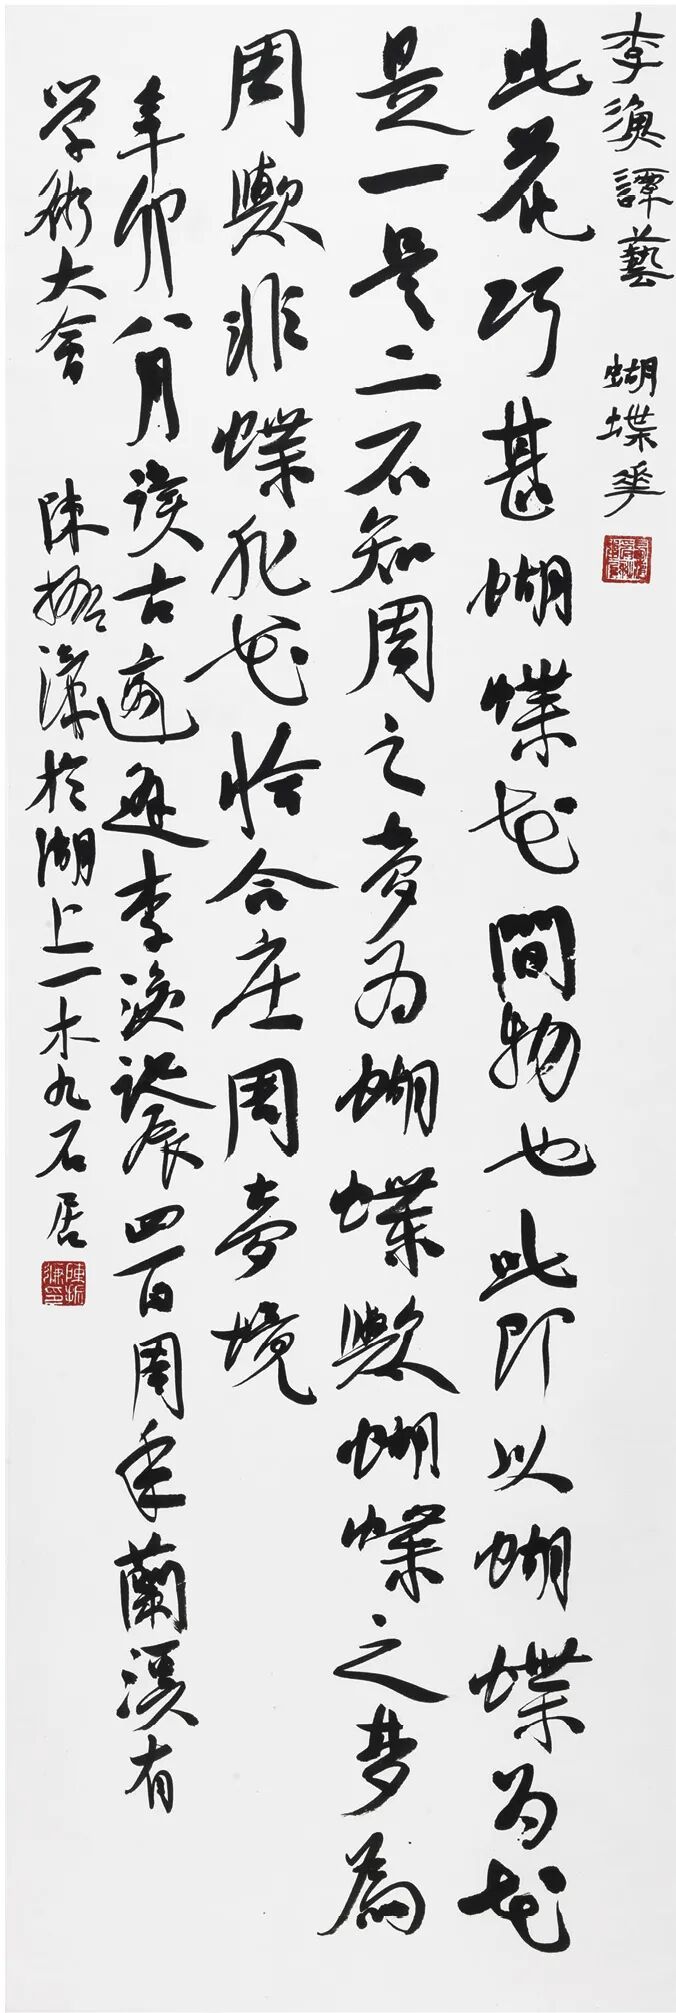 李漁譚藝 蝴蝶花
此花巧甚蝴蝶花間物也此即以蝴蝶为花
是一是二不知周之夢为蝴蝶歟蝴蝶之梦為
周歟非蝶非花恰合庄周夢境
辛卯八月读古適逢李渔诞辰四百周年蘭溪有
学術大會 陳振濂於湖上一木九石居
陳振濂印